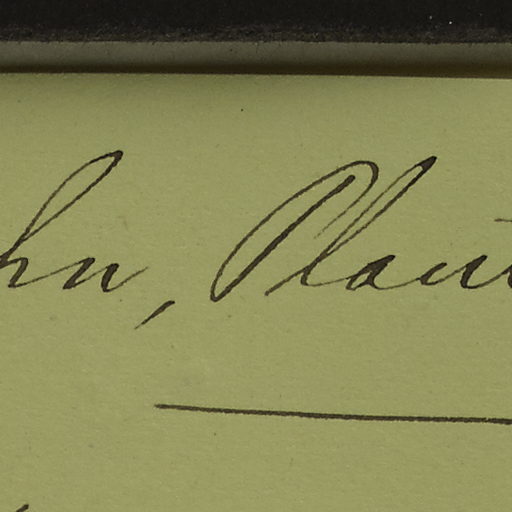 hn, Plant